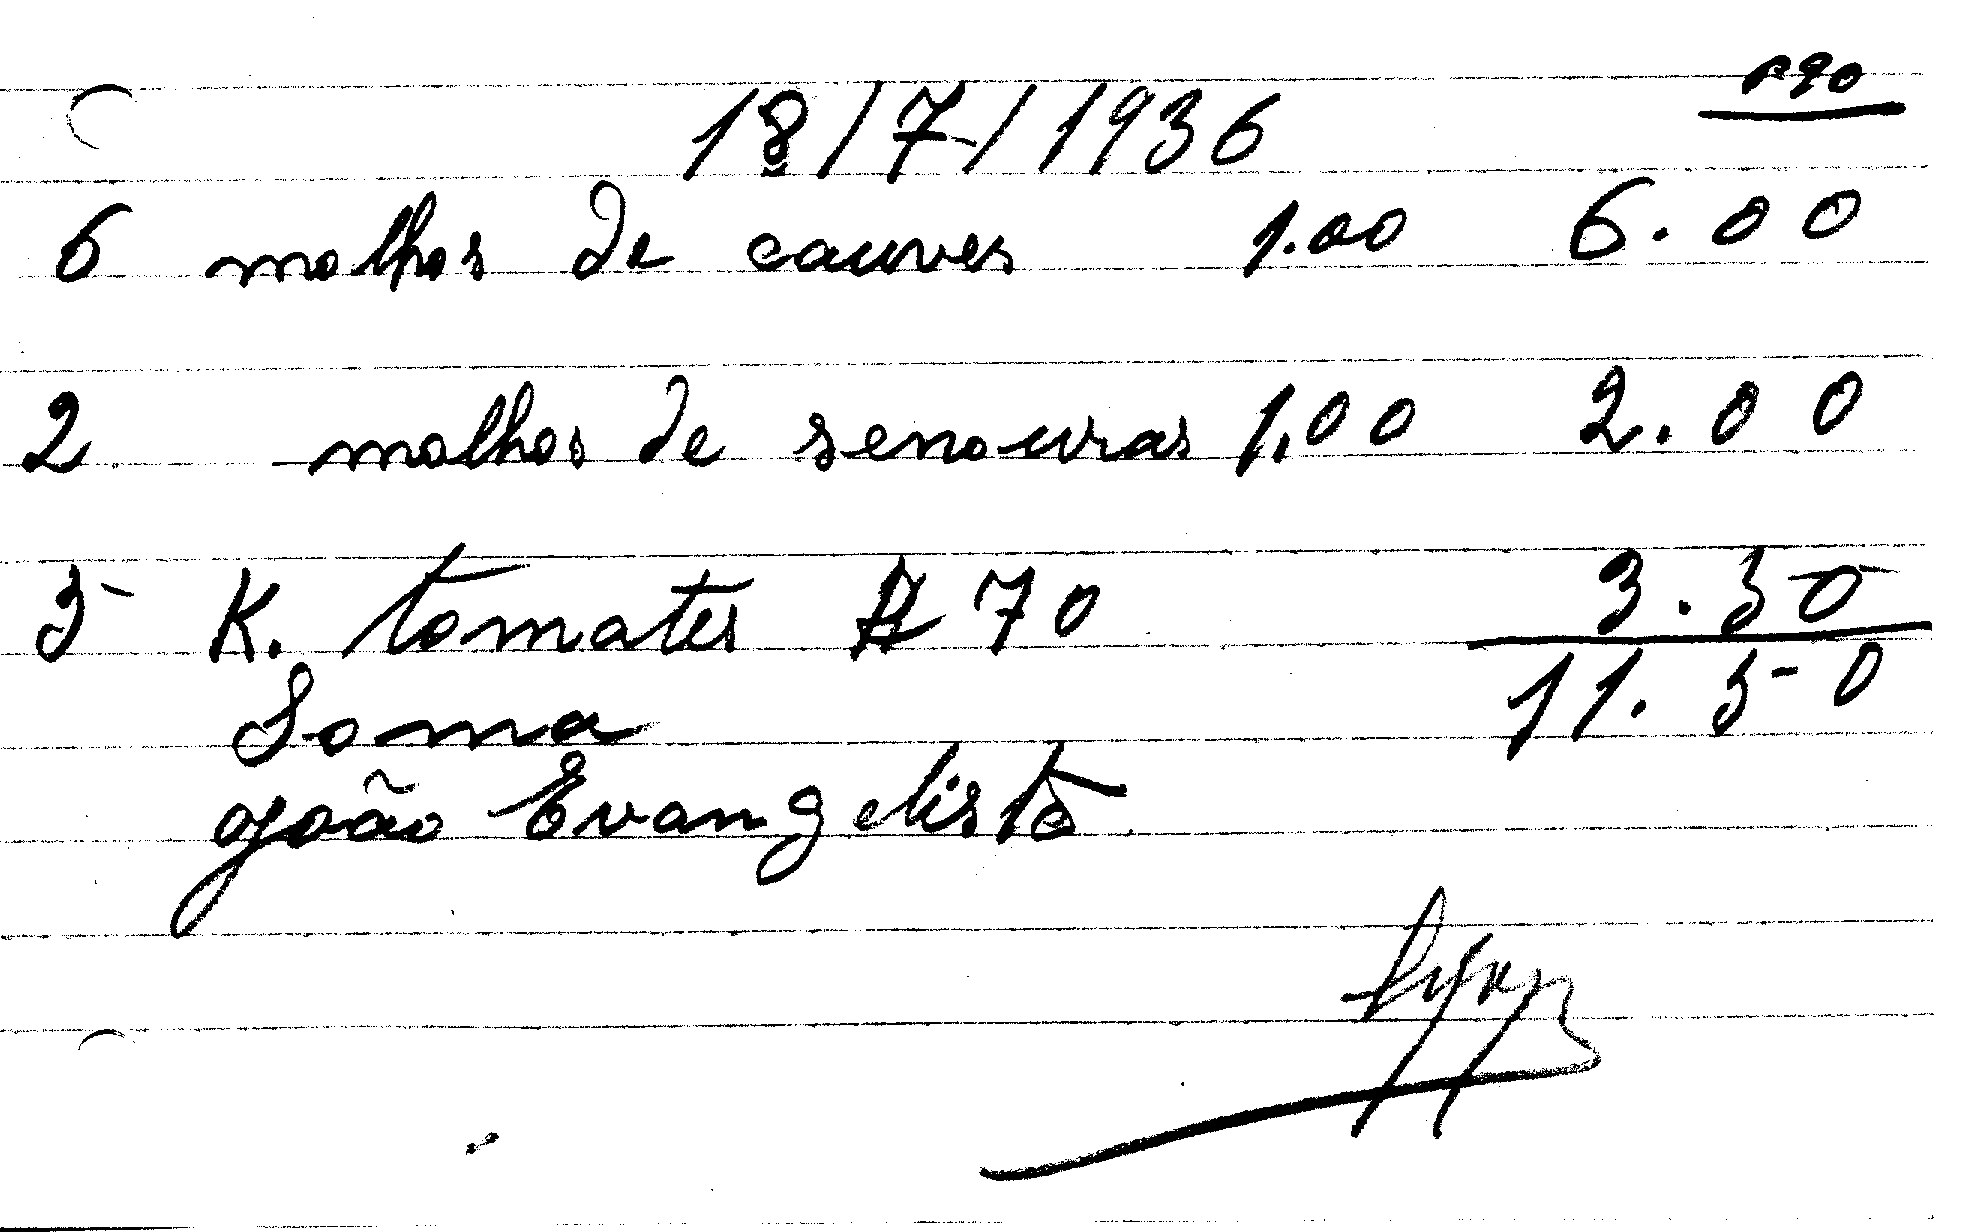 P90
18/7/1936
6 molhos de cauves 1.00 6.00
2 molhos de senouras 1.00 2.00
5 K. tomates 70 3.50
Soma 11.50
João Evangelista